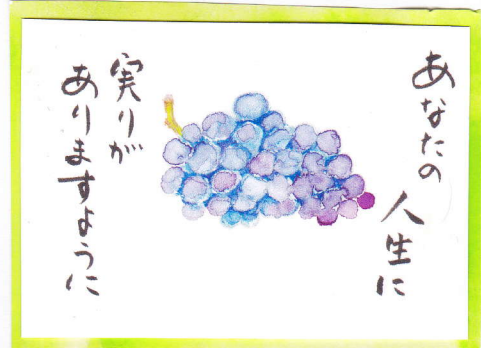 あなたの
人生に
実りが
ありますように